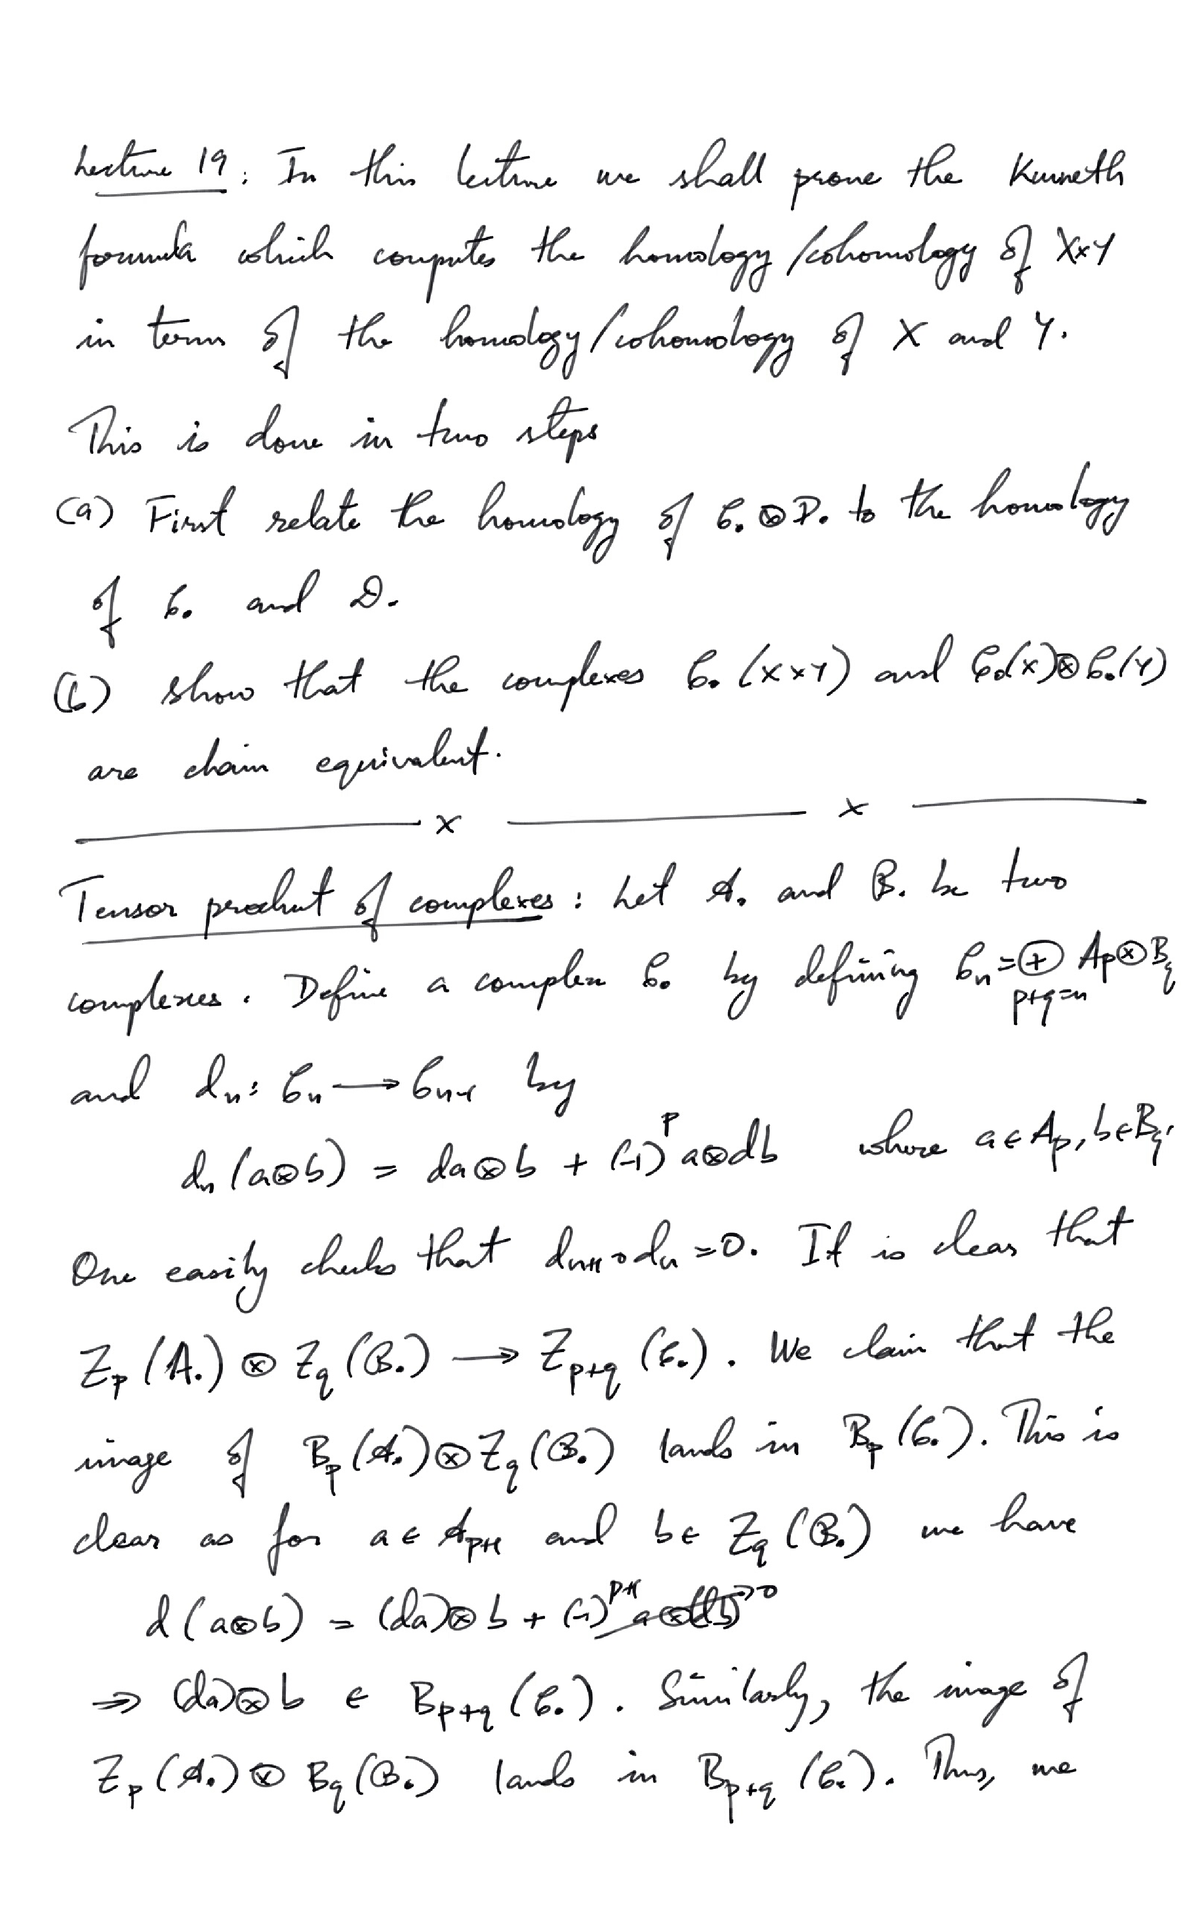 Lecture 19: In this lecture we shall prove the Kunneth
formula which computes the homology/cohomology of X×Y
in terms of the homology/cohomology of X and Y.
This is done in two steps
(a) First relate the homology of C. ⊗ D. to the homology
of C. and D.
(b) show that the complexes C.(X×Y) and C.(X)⊗C.(Y)
are chain equivalent.
x x
Tensor product of complexes: Let A. and B. be two
complexes. Define a complex C. by defining Cₙ = ⊕_{p+q=n} A_p⊗B_q
and dₙ: Cₙ ⟶ Cₙ₋₁ by
dₙ(a⊗b) = da⊗b + (-1)^p a⊗db where a∈A_p, b∈B_q.
One easily checks that dₙ₊₁∘dₙ = 0. It is clear that
Z_p(A.) ⊗ Z_q(B.) ⟶ Z_{p+q}(C.). We claim that the
image of B_p(A.)⊗Z_q(B.) lands in B_p(C.). This is
clear as for a∈A_{p+1} and b∈Z_q(B.) we have
d(a⊗b) = (da)⊗b + (-1)^{p+1} a⊗(db)→0
⇒ (da)⊗b ∈ B_{p+q}(C.). Similarly, the image of
Z_p(A.) ⊗ B_q(B.) lands in B_{p+q}(C.). Thus, we